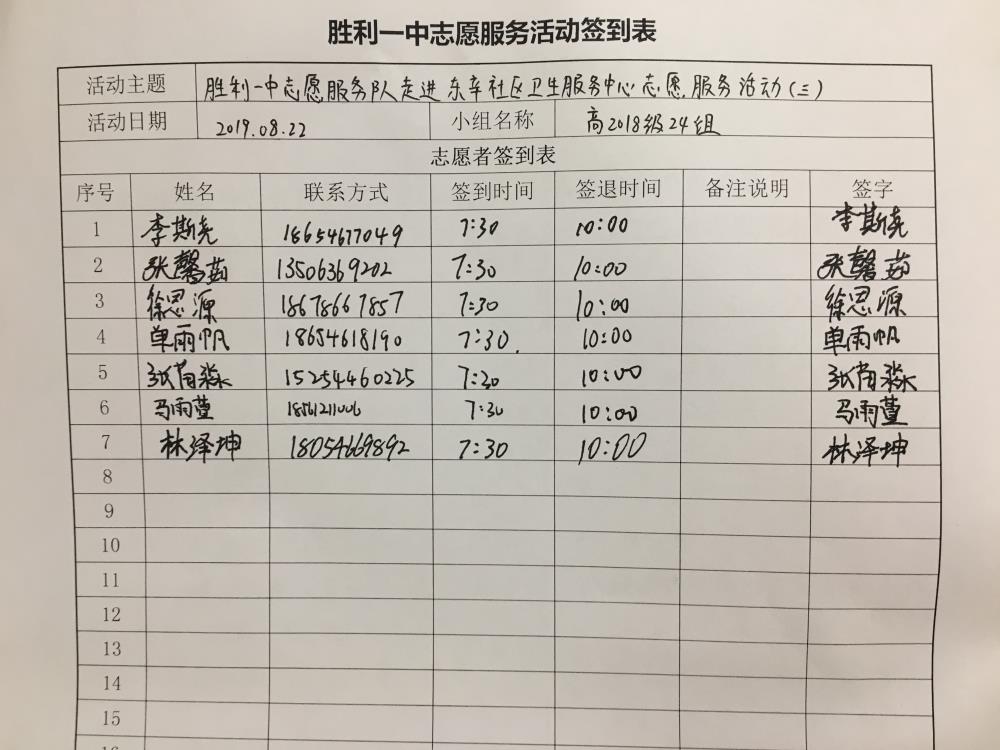 胜利一中志愿服务活动签到表
活动主题 胜利一中志愿服务队走进东辛社区卫生服务中心志愿服务活动(三)
活动日期 2019.08.22 小组名称 高2018级24组
志愿者签到表
序号 姓名 联系方式 签到时间 签退时间 备注说明 签字
1 李斯尧 18654677049 7:30 10:00 李斯尧
2 张馨茹 13506369202 7:30 10:00 张馨茹
3 徐思源 18678667857 7:30 10:00 徐思源
4 单雨帆 18654618190 7:30. 10:00 单雨帆
5 张苗淼 15254460225 7:30 10:00 张苗淼
6 马雨萱 18561211006 7:30 10:00 马雨萱
7 林泽坤 18054669892 7:30 10:00 林泽坤
8
9
10
11
12
13
14
15